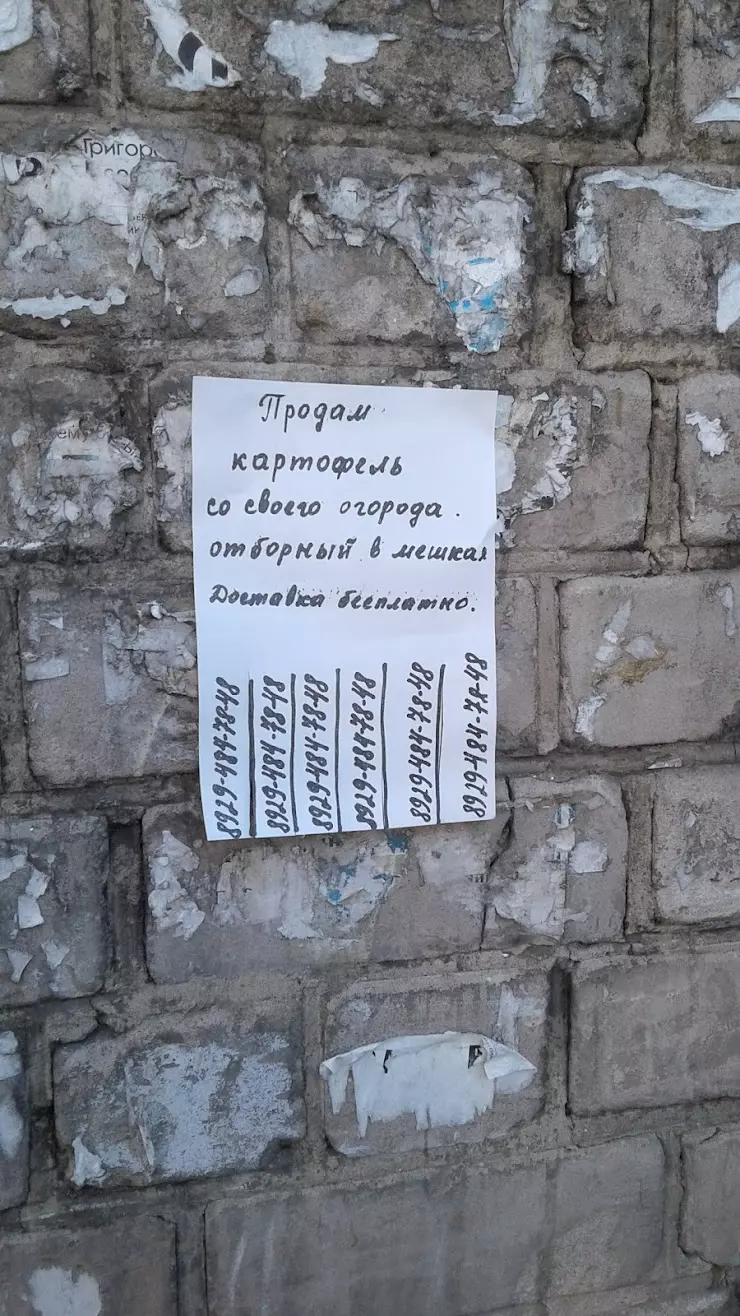 Григор
Продам
картофель
со своего огорода.
отборный в мешках
Доставка бесплатно.
8929-484-78-48
8929-484-78-48
8929-484-78-48
8929-484-78-48
8929-484-78-48
8929-484-78-48